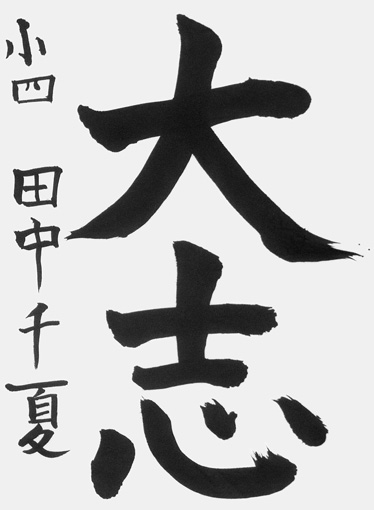 大志
小四 田中千夏